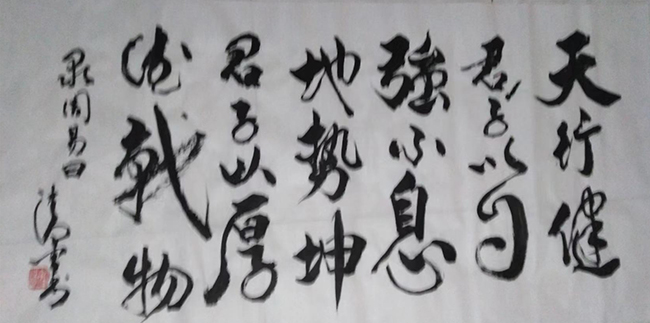 天行健
君子以自
強不息
地勢坤
君子以厚
德載物
录周易曰